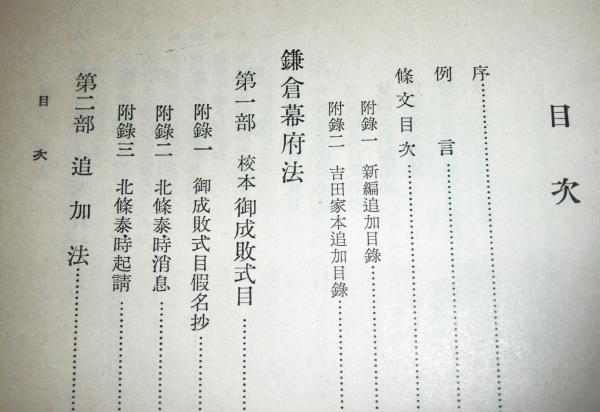 目次
序
例言
條文目次
附錄一 新編追加目錄
附錄二 吉田家本追加目錄
鎌倉幕府法
第一部 校本御成敗式目
附錄一 御成敗式目假名抄
附錄二 北條泰時消息
附錄三 北條泰時起請
第二部 追加法
目次